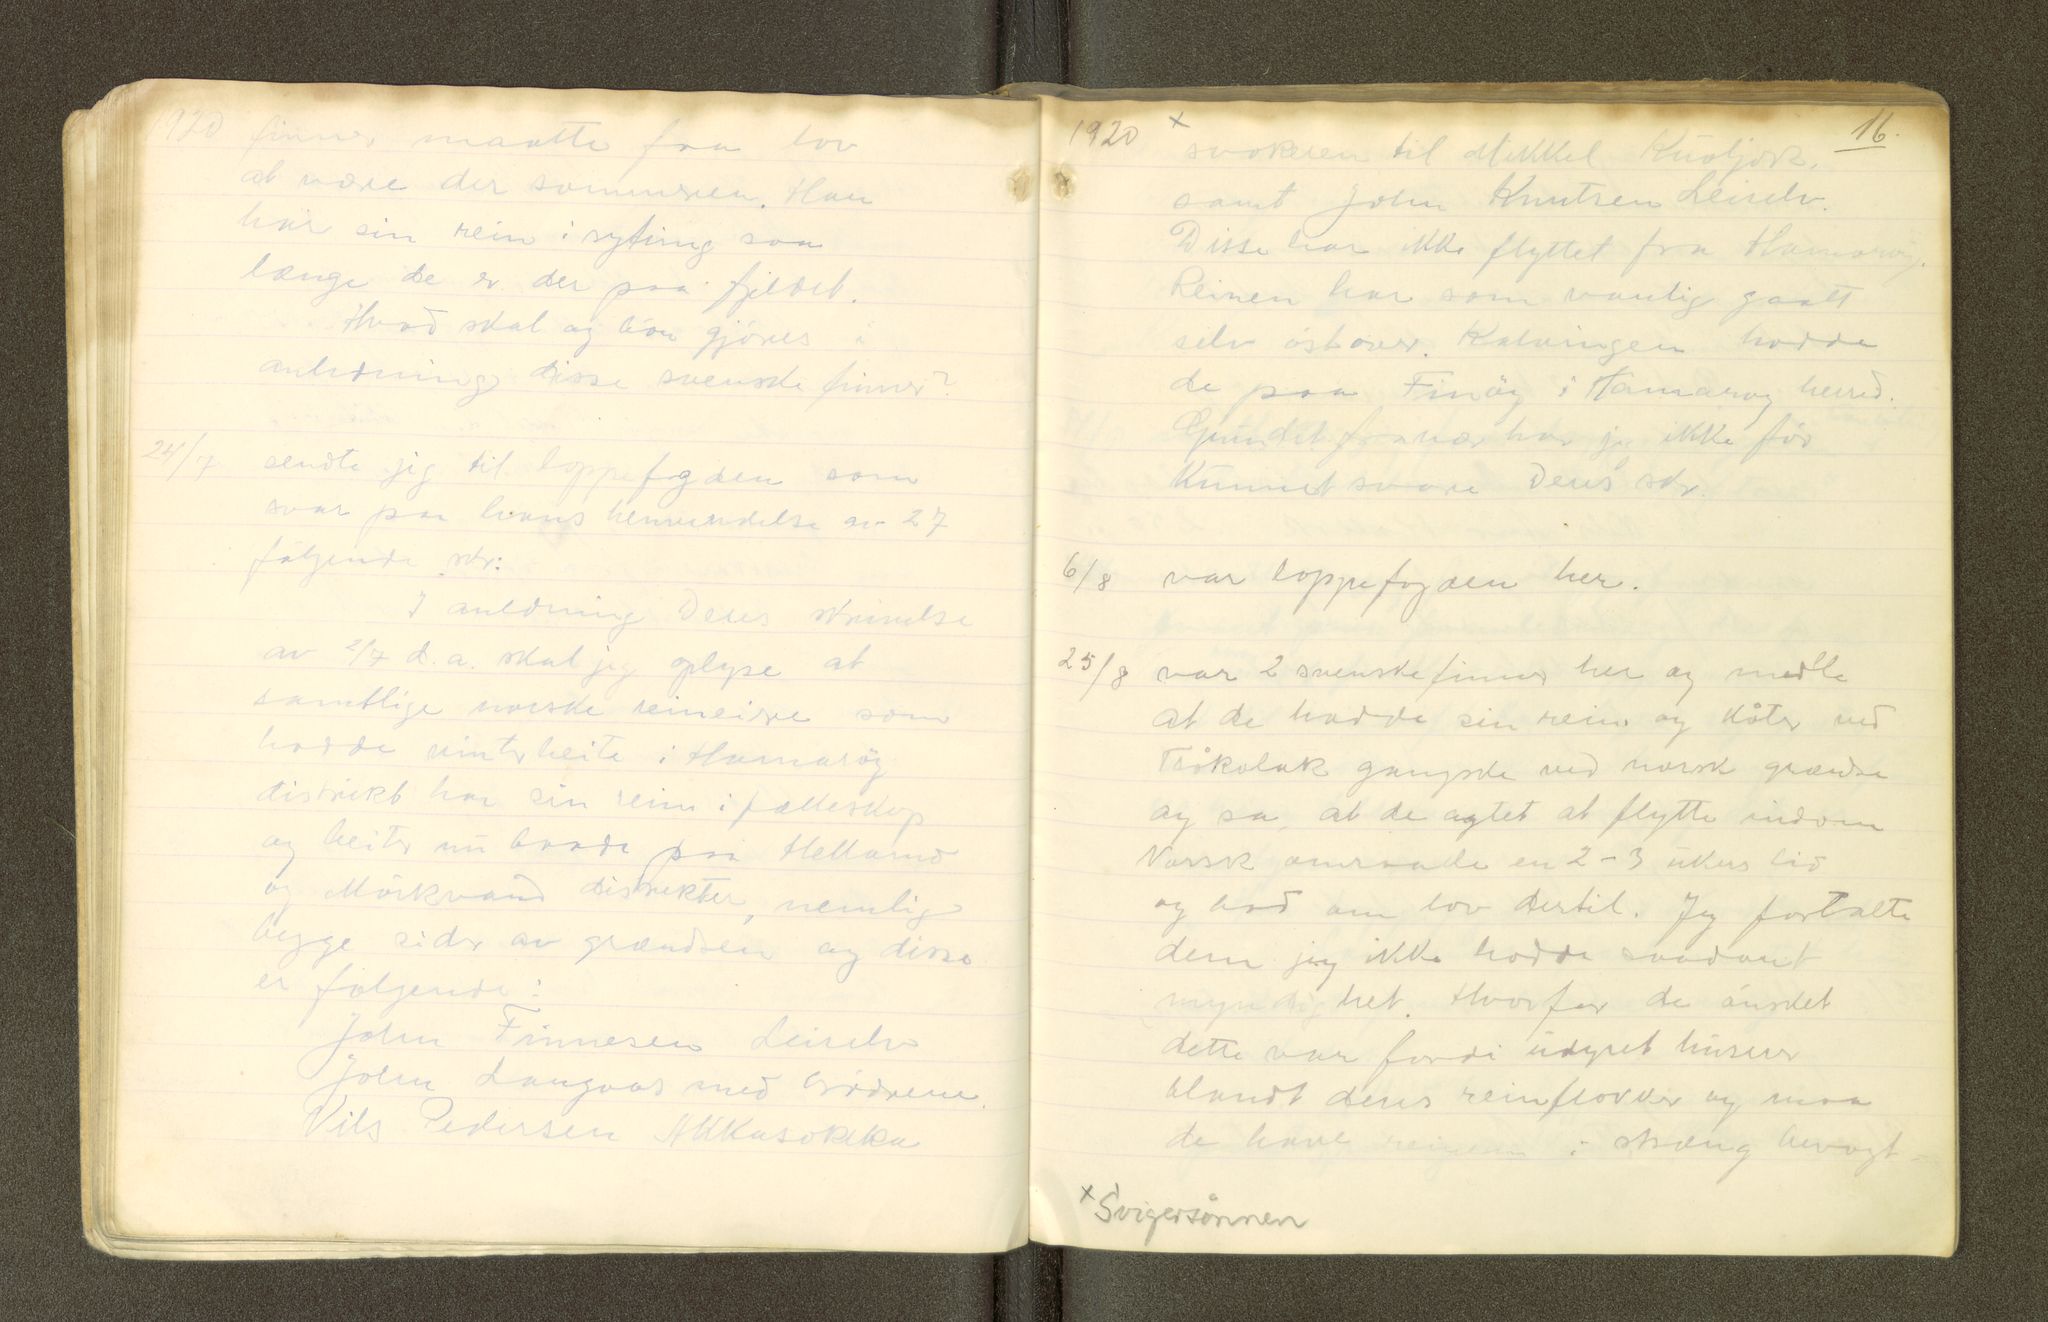 1920 finner maatte faa lov
at være der sommeren. Han
har sin rein i gjæting saa
længe de er der paa fjeldet.
Hvad skal og bør gjöres i
anledning disse svenske finner?
24/7 sendte jeg til lappefogden som
svar paa hans henvendelse av 2/7
følgende skr:
I anledning Deres skrivelse
av 2/7 d.a. skal jeg oplyse at
samtlige norske reineiere som
hadde vinterbeite i Hamarøy
distrikt har sin rein i fælleskap
og beiter nu baade paa Hellarmo
og Mörkvand distrikter, nemlig
begge sider av grændsen og disse
er følgende:
John Finnesen Leirelv
John Langaas med brödrene
Nils Pedersen Akkasokka
1920 x 16.
svokeren til Mikkel Kuoljok,
samt John Knutsen Leirelv.
Disse har ikke flyttet fra Hamaröy.
Reinen har som vanlig gaatt
selv östover. Kalvingen hadde
de paa Finöy i Hamaröy herred.
Grundet fravær har jeg ikke för
kunnet svare Deres skr.
6/8 var lappefogden her.
25/8 var 2 svenske finner her og meldte
at de hadde sin rein og kåter ved
ganske ved norsk grændse
og sa, at de agtet at flytte indom
Norsk omraade en 2-3 ukers tid
og bad om lov dertil. Jeg fortalte
dem jeg ikke hadde saadant
myndighet. Hvorfor de önsket
dette var fordi udyret huserer
blandt deres reinflokker og maa
de have reinen i stræng bevogt-
x Svigersönnen